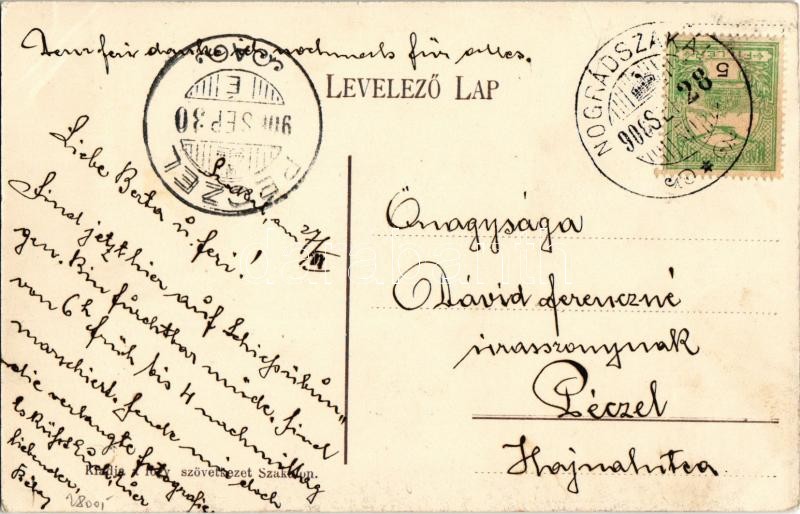 Dem feri danke ich nochmals für alles.
LEVELEZŐ LAP
NÓGRÁDSZAKÁL
906 S 28
5
PÉCZEL
906 SEP 30
É
am 27/IX
Liebe Berta u. feri!
Sind jetzt hier auf Schießübun"
gen. Bin furchtbar müde. Sind
von 6 h früh bis 4 nachmittag
marschiert. Sende mir doch
die verlangte fotografie.
Es küßt Euch Euer
liebender
Őnagysága
Dávid ferenczné
úrasszonynak
Péczel
Hajnalutca
Kiadja a szövetkezet Szakálon.
28001